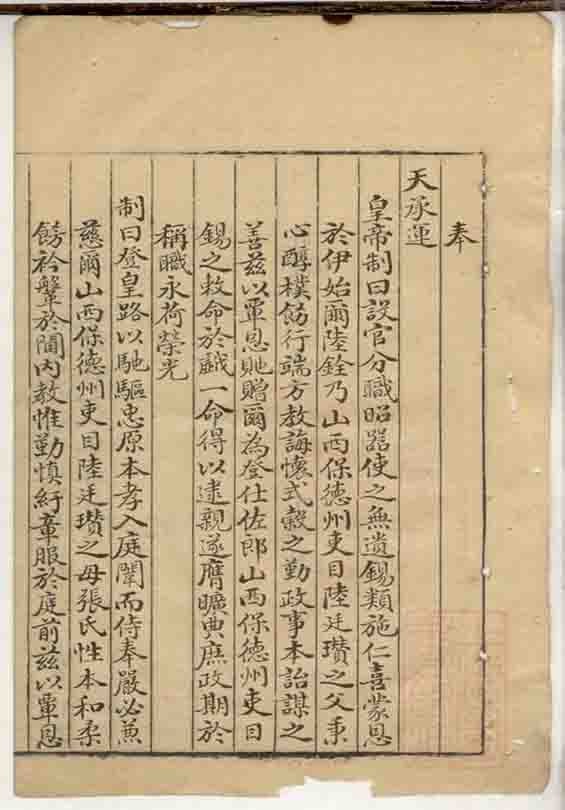 奉
天承運
皇帝制曰設官分職昭器使之無遺錫類施仁喜蒙恩
於伊始爾陸銓乃山西保德州吏目陸廷瓚之父秉
心醇樸飭行端方教誨懷式穀之勤政事本詒謀之
善茲以覃恩貤贈爾為登仕佐郎山西保德州吏目
錫之敕命於戲一命得以逮親遂膺曠典庶政期於
稱職永荷榮光
制曰登皇路以馳驅忠原本孝入庭闈而侍奉嚴必兼
慈爾山西保德州吏目陸廷瓚之母張氏性本和柔
飭衿鞶於閫內教惟勤慎紆章服於庭前茲以覃恩